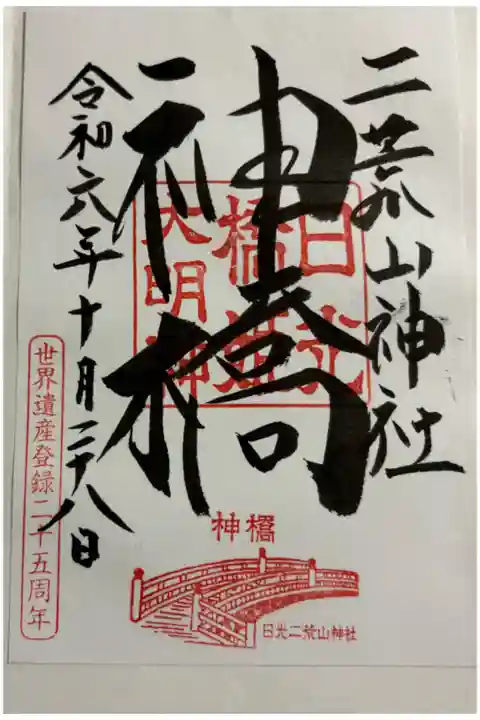 二荒山神社
神橋
日光
橋姫
大明神
令和六年十月二十八日
世界遺産登録二十五周年
神橋
日光二荒山神社